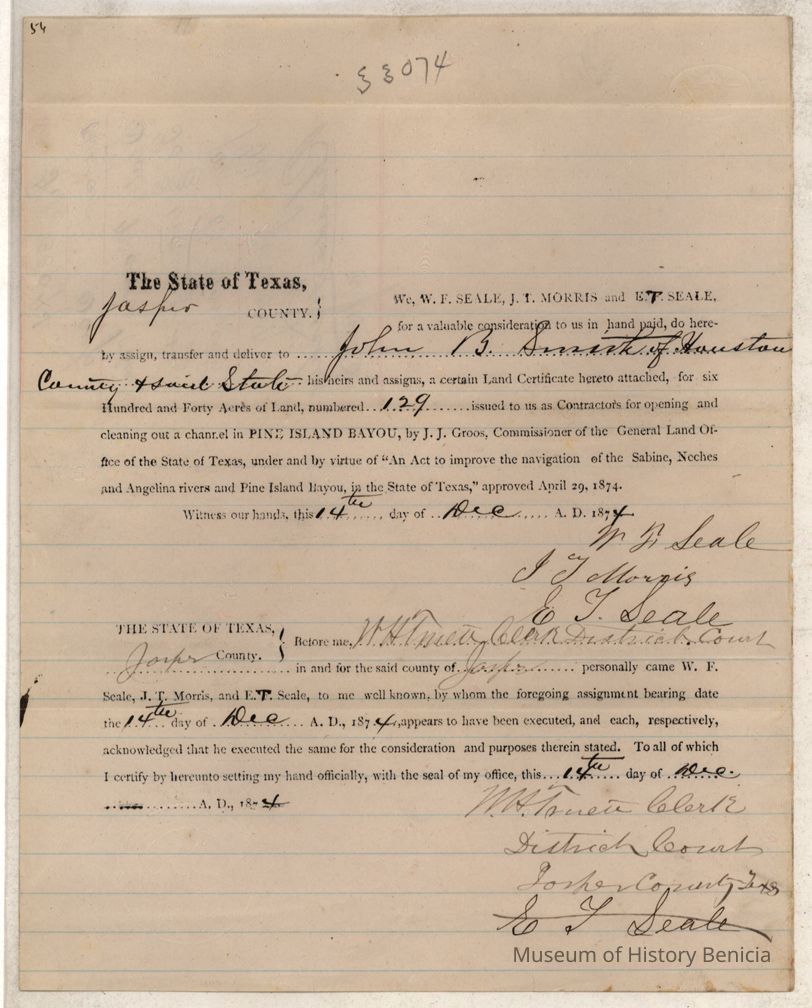 54
33074
The State of Texas,
Jasper COUNTY.
We, W. F. SEALE, J. T. MORRIS and E. T. SEALE,
for a valuable consideration to us in hand paid, do here-
by assign, transfer and deliver to John B. Smith of Houston
County & said State his heirs and assigns, a certain Land Certificate hereto attached, for six
Hundred and Forty Acres of Land, numbered 129 issued to us as Contractors for opening and
cleaning out a channel in PINE ISLAND BAYOU, by J. J. Groos, Commissioner of the General Land Of-
fice of the State of Texas, under and by virtue of "An Act to improve the navigation of the Sabine, Neches
and Angelina rivers and Pine Island Bayou, in the State of Texas," approved April 29, 1874.
Witness our hands, this 14th day of Dec A. D. 1874
W F Seale
J T Morris
E T. Seale
THE STATE OF TEXAS,
Jasper County.
Before me, W. H. Truett Clerk District Court
in and for the said county of Jasper personally came W. F.
Seale, J. T. Morris, and E. T. Seale, to me well known, by whom the foregoing assignment bearing date
the 14th day of Dec A. D., 1874, appears to have been executed, and each, respectively,
acknowledged that he executed the same for the consideration and purposes therein stated. To all of which
I certify by hereunto setting my hand officially, with the seal of my office, this 14th day of Dec.
A. D., 1874
W. H. Truett Clerk
District Court
Jasper County Texs
E T Seale
Museum of History Benicia